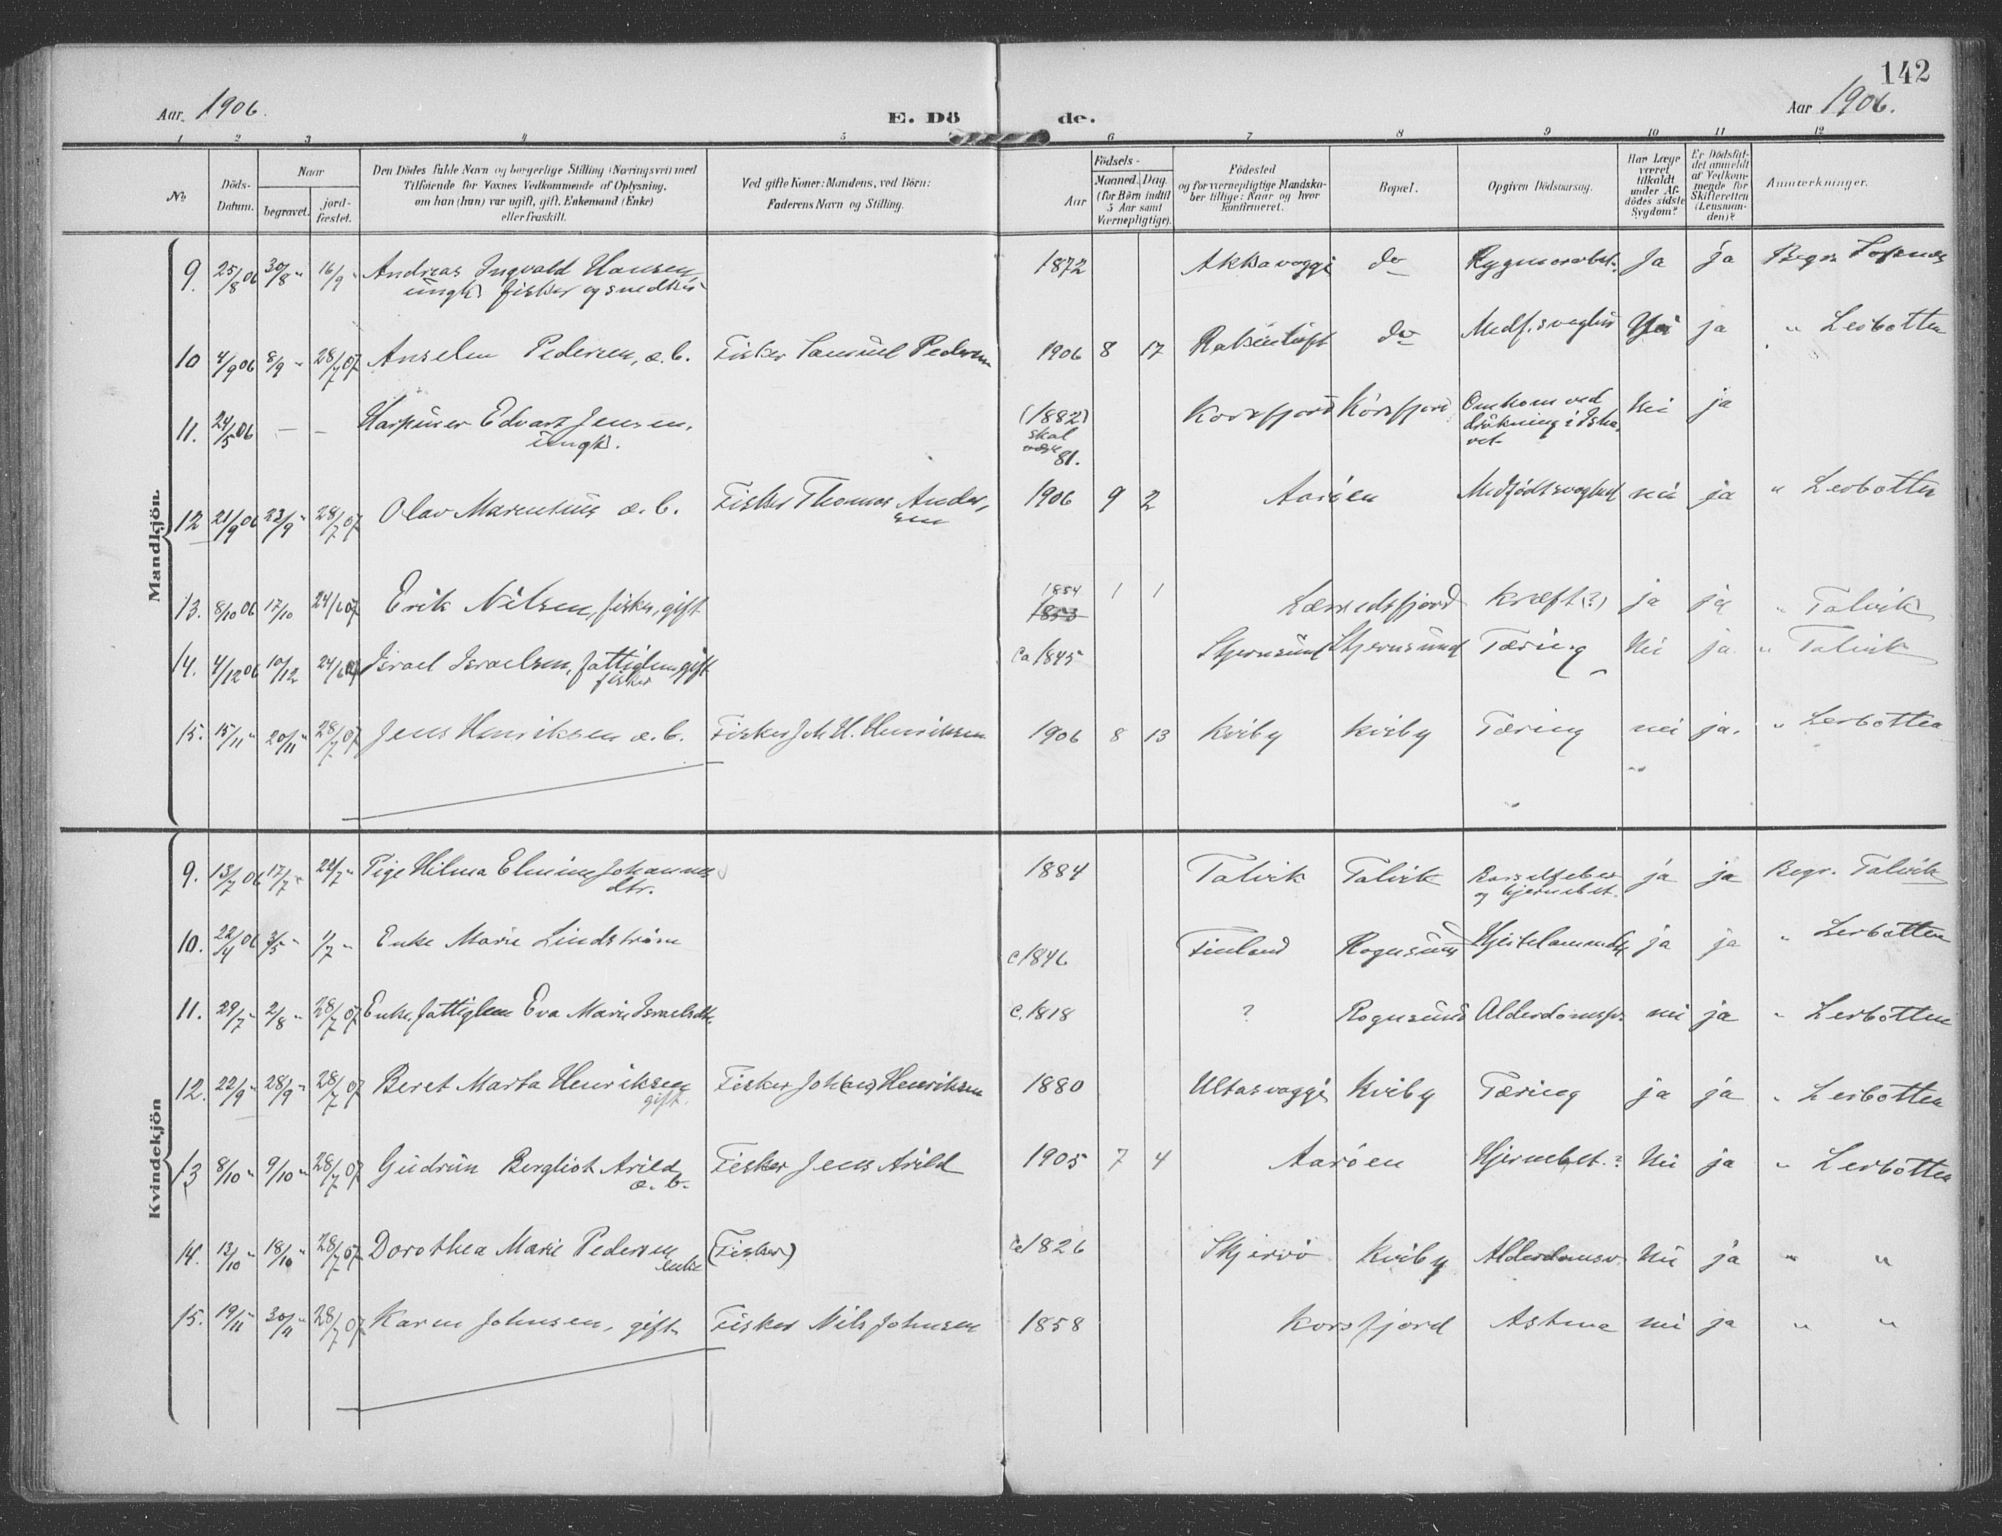 142
Aar 1906.
E. Dö
de.
Aar 1906.
1 2 3 4 5 6 7 8 9 10 11 12
No.
Döds-
Datum.
Naar
begravet.
jord-
fæstet.
Den Dödes fulde Navn og borgerlige Stilling (Næringsvei) med
Tilföiende for Voxnes Vedkommende af Oplysning,
om han (hun) var ugift, gift, Enkemand (Enke)
eller fraskilt.
Ved gifte Koner: Mandens, ved Börn:
Faderens Navn og Stilling.
Födsels-
Aar
Maaned. Dag.
(for Börn indtil
5 Aar samt
Værnepligtige).
Födested
og for værnepligtige Mandska-
ber tillige: Naar og hvor
konfirmeret.
Bopæl.
Opgiven Dödsaarsag.
Har Læge
været
tilkaldt
under Af-
dödes sidste
Sygdom?
Er Dödsfal-
det anmeldt
af Vedkom-
mende for
Skifteretten
(Lensman-
den)?
Anmærkninger.
Mandkjön.
9. 25/8 06 30/8 " 16/9 " Andreas Ingvald Hansen 1872 Akkavaggi do Ja ja Begr.
ungk. fisker og snedker
10 4/9 06 8/9 " 28/7 07 Anselm Pedersen, æ.b. Fisker Samuel Pedersen 1906 8 17 do Medf. svaghed ja " Lerbotten
11. 24/5 06 — — Harpuner Edvart Jensen, (1882) Korsfjord Korsfjord Omkom ved nei ja
ungk. skal være 81. drukning i Isha-
vet
12 21/9 06 23/9 " 28/7 07 Olav Marentius æ.b. Fisker Thomas Ander- 1906 9 2 Aaröen Medfödt svaghed nei ja " Lerbotten
sen
13. 8/10 06 17/10 24/6 07 Erik Nilsen, fisker, gift 1854 1853 1 1 Læredsfjord Kræft (?) ja ja " Talvik
14. 4/12 06 10/12 24/6 07 Israel Israelsen, fattiglem, gift ca 1845 Stjernsund Stjernsund Tæring Nei ja " Talvik
fisker
15. 15/11 " 20/11 " 28/7 07 Jens Henriksen æ.b. Fisker Joh H. Henriksen 1906 8 13 Kviby Kviby Tæring nei ja. " Lerbotten
Kvindekjön
9. 13/7 06 17/7 " 22/7 " Pige Hilma Elmine Johannes 1884 Talvik Talvik ja ja Begr. Talvik
dtr. og hjernebet.
10. 22/4 06 3/5 " 1/7 " Enke Marie Lindström c 1846 Finland Rognsund Hjertelammelse ja ja " Lerbotten
11. 29/7 " 2/8 " 28/7 07 Enke, fattiglem Eva Marie Israelsdtr. c. 1818 ? Rognsund Alderdomssv. nei ja " Lerbotten
12. 22/9 " 28/9 " 28/7 07 Beret Marta Henriksen Fisker Johan Henriksen 1880 Ultasvaggi Kviby Tæring ja ja " Lerbotten
gift.
13 8/10 " 9/10 " 28/7 07 Gudrun Bergliot Arild Fisker Jens Arild 1905 7 4 Aaröen Hjernebet.? Nei ja " Lerbotten
æ.b.
14. 13/10 " 18/10 " 28/7 07 Dorothea Marie Pedersen (Fisker) ca 1826 Skjervö Kviby Alderdomssv. Nei ja " "
enke
15. 19/11 " 30/11 " 28/7 07 Karen Johnsen, gift Fisker Nils Johnsen 1858 Korsfjord Astma nei ja " "